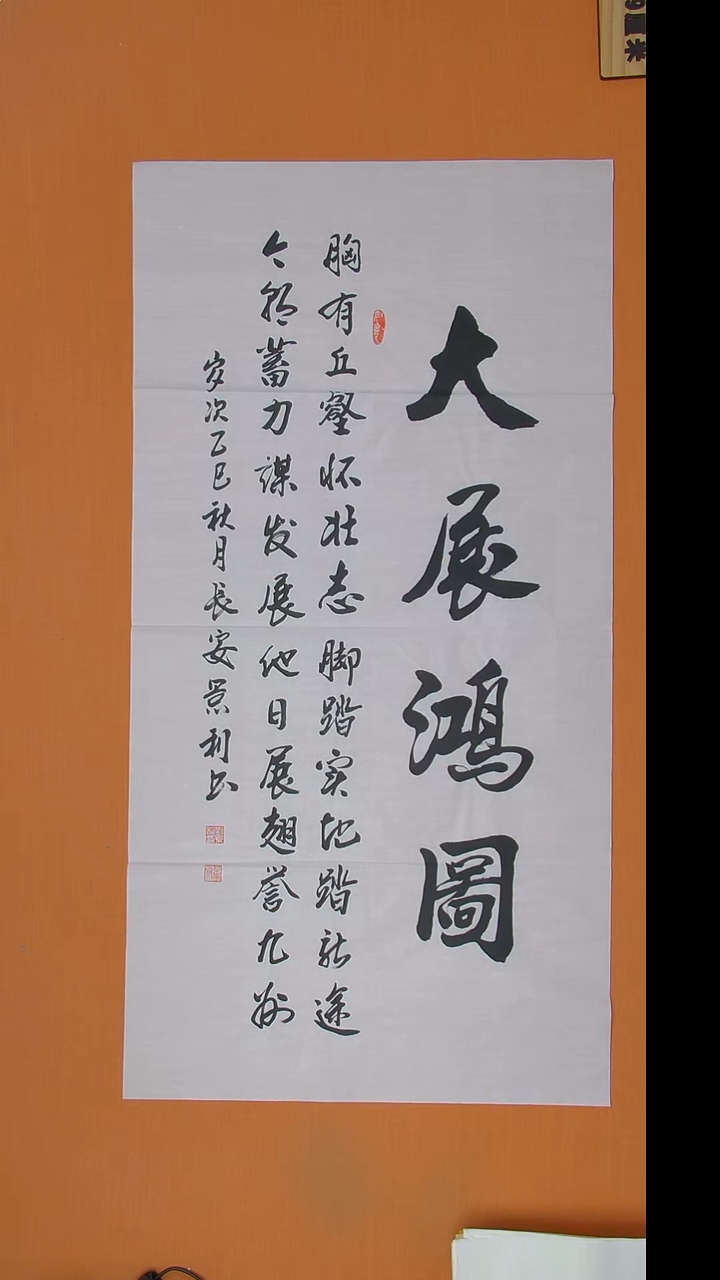 大展鴻圖
胸有丘壑怀壮志脚踏实地踏新途
今朝蓄力谋发展他日展翅誉九州
岁次乙巳秋月长安景利书
厘米